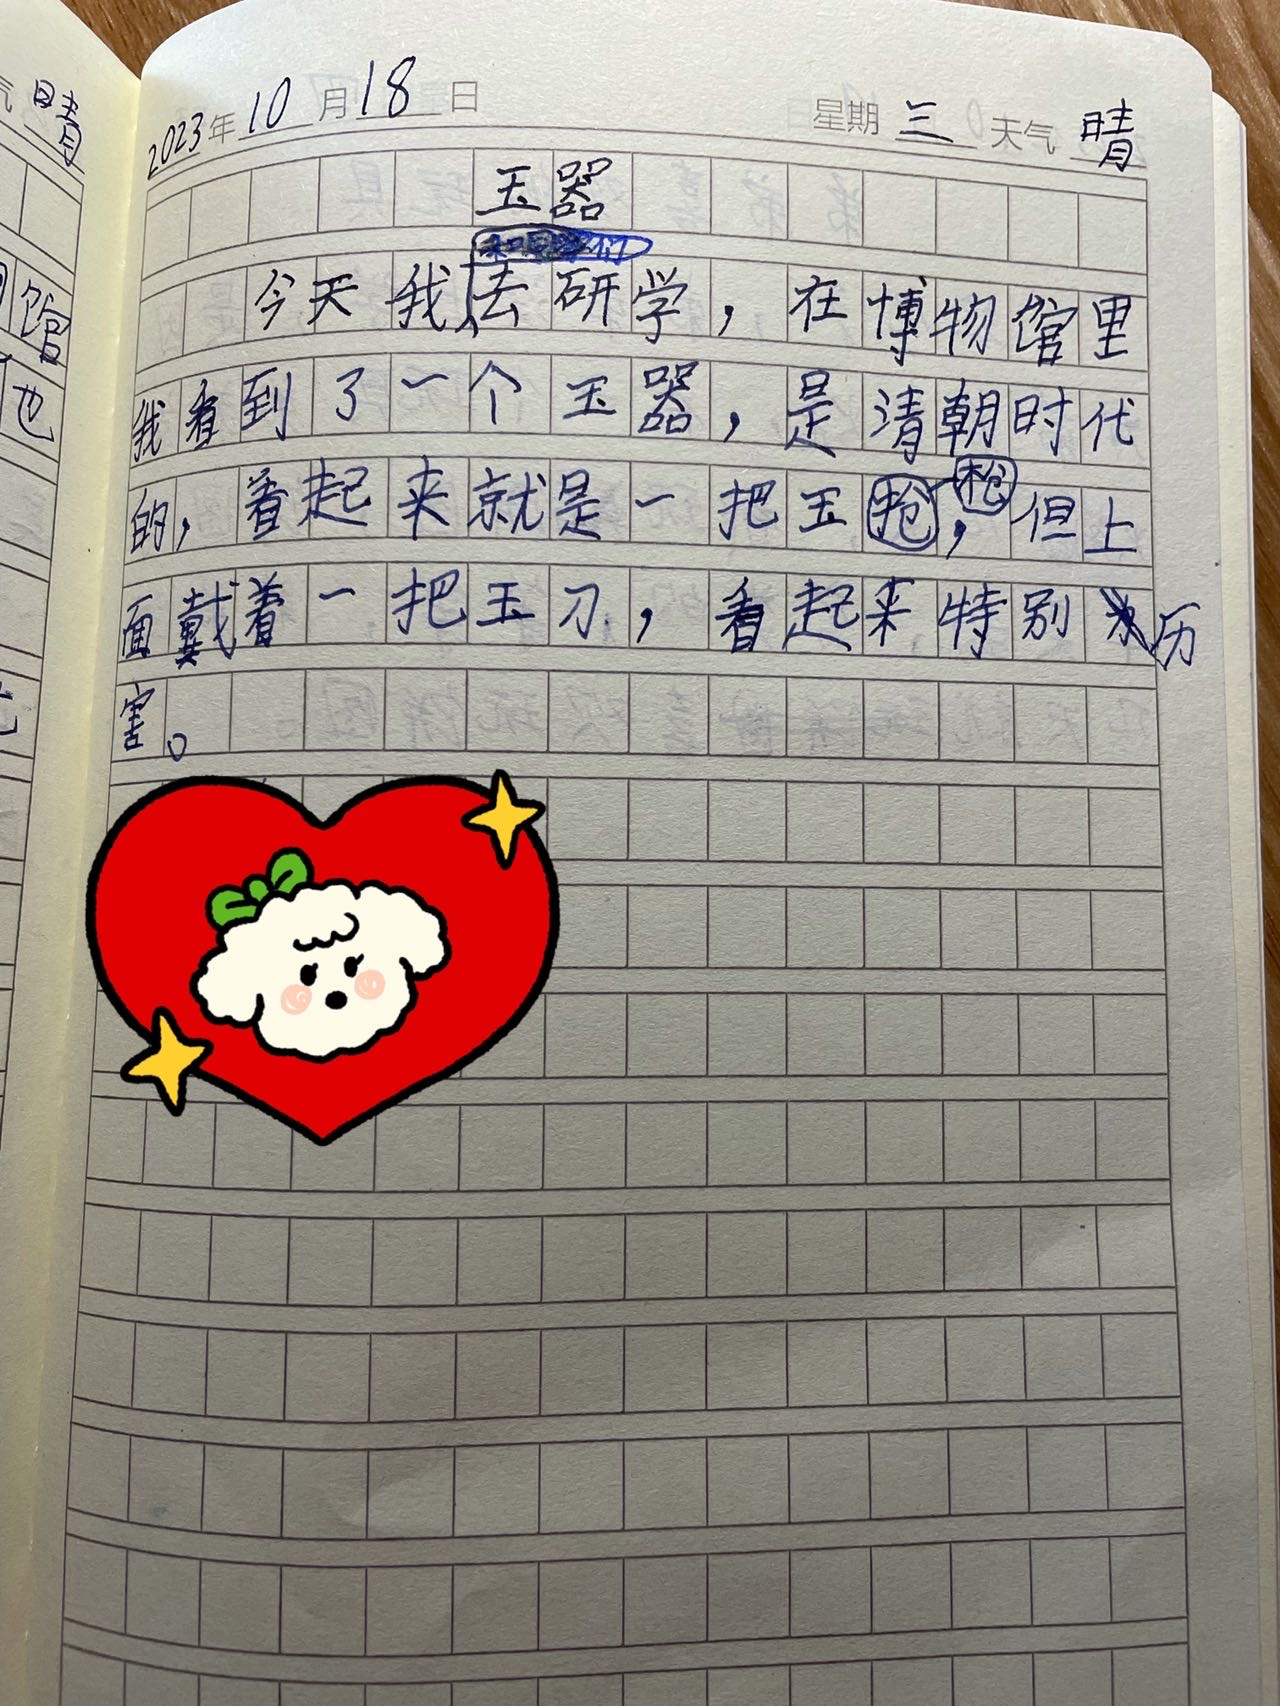 2023年10月18日 星期三 天气晴
玉器
和同学们
今天我去研学，在博物馆里
我看到了一个玉器，是清朝时代
的，看起来就是一把玉抢，枪但上
面戴着一把玉刀，看起来特别历
害。
气晴
馆
也